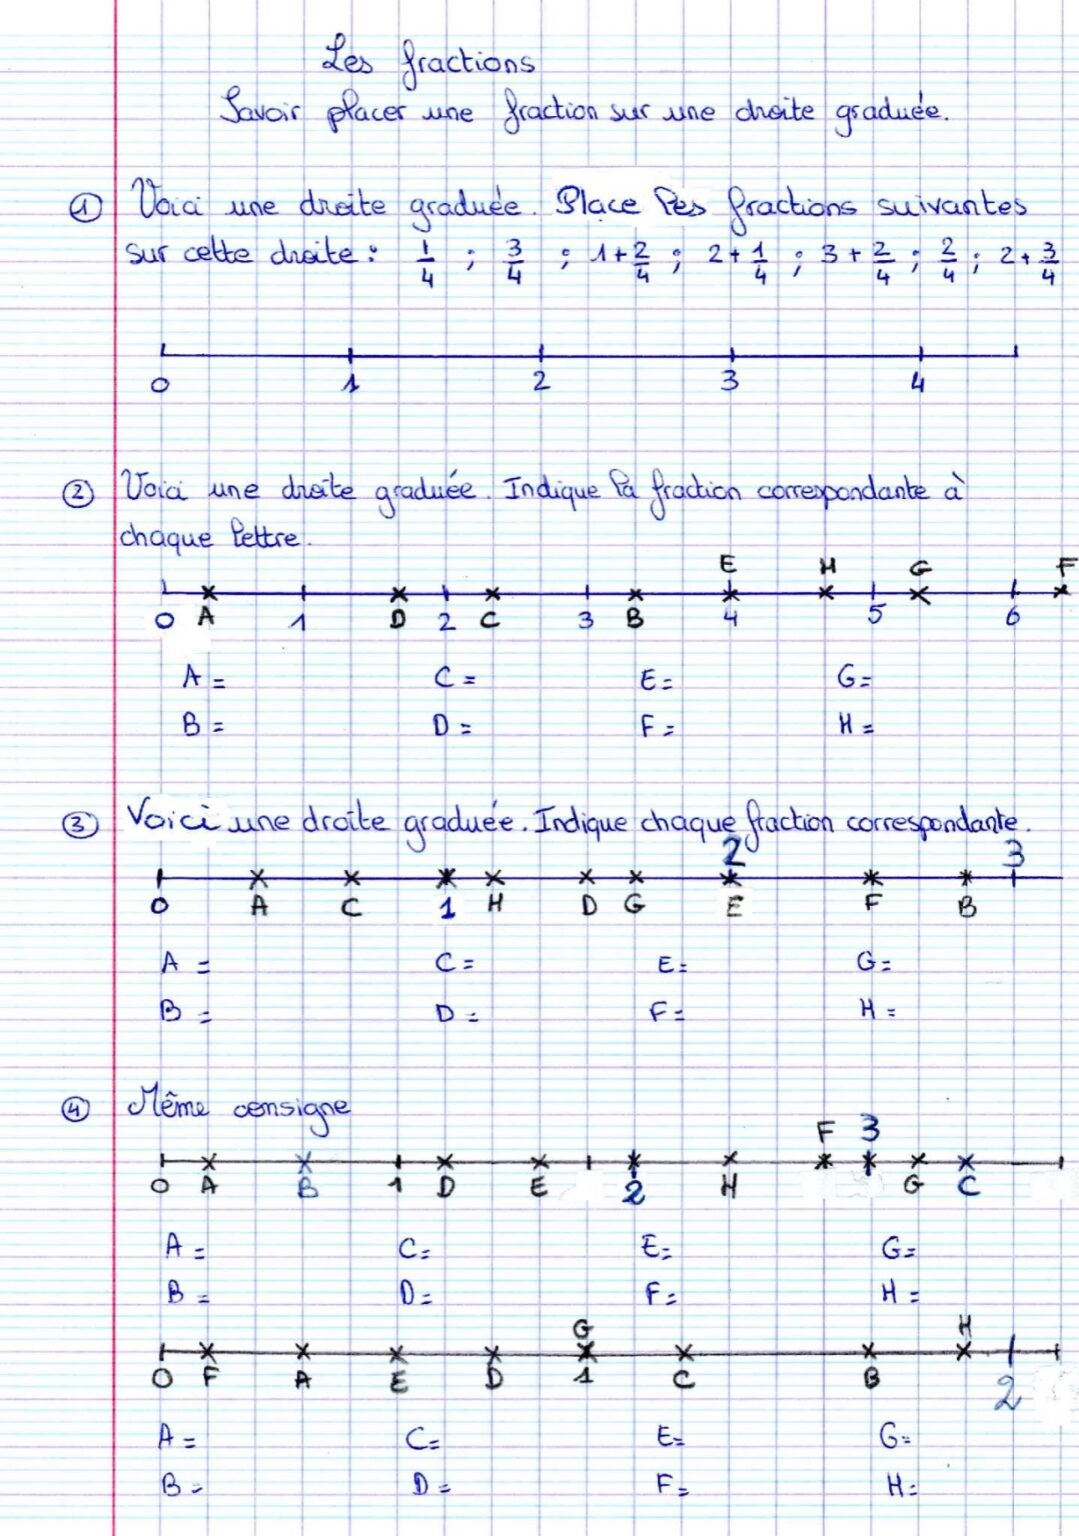 Les fractions
Savoir placer une fraction sur une droite graduée.
① Voici une droite graduée. Place les fractions suivantes
sur cette droite : 1/4 ; 3/4 ; 1+2/4 ; 2+1/4 ; 3+2/4 ; 2/4 ; 2+3/4
0 1 2 3 4
② Voici une droite graduée. Indique la fraction correspondante à
chaque lettre.
E H G F
0 A 1 D 2 C 3 B 4 5 6
A = C = E = G =
B = D = F = H =
③ Voici une droite graduée. Indique chaque fraction correspondante.
2 3
0 A C 1 H D G E F B
A = C = E = G =
B = D = F = H =
④ Même consigne
F 3
0 A B 1 D E 2 H G C
A = C = E = G =
B = D = F = H =
G H
0 F A E D 1 C B 2
A = C = E = G =
B = D = F = H =